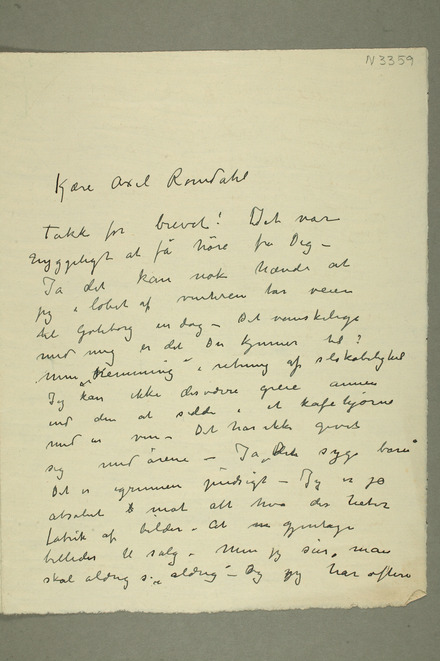 N 3359
Kære Axel Romdahl
Takk for brevet! Det var
hyggeligt at få høre fra Dig –
Ja det kan nok hænde at
jeg i løbet af vinteren tar veien
til Göteborg en dag – Det vanskelige
med mig er det Du kjenner til?
min „Hemming" i retning af selskabelighed
Jeg kan ikke desværre greie annen
end den at sidde i et kafehjørne
med en ven – Det har ikke givet
sig med årene – Ja „Det syge barn"
Det er igrunnen – Jeg er jo
absolut mot alt hva der heter
fabrik af billeder – At gjentage
billeder til salg – Men jeg sier, man
skal aldrig si „aldrig" – Og jeg har oftere